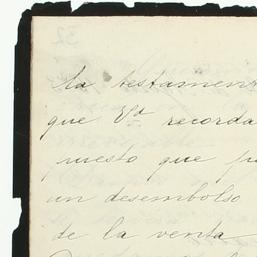 la testament
que Vd recorda
puesto que fu
un desembolso
de la venta